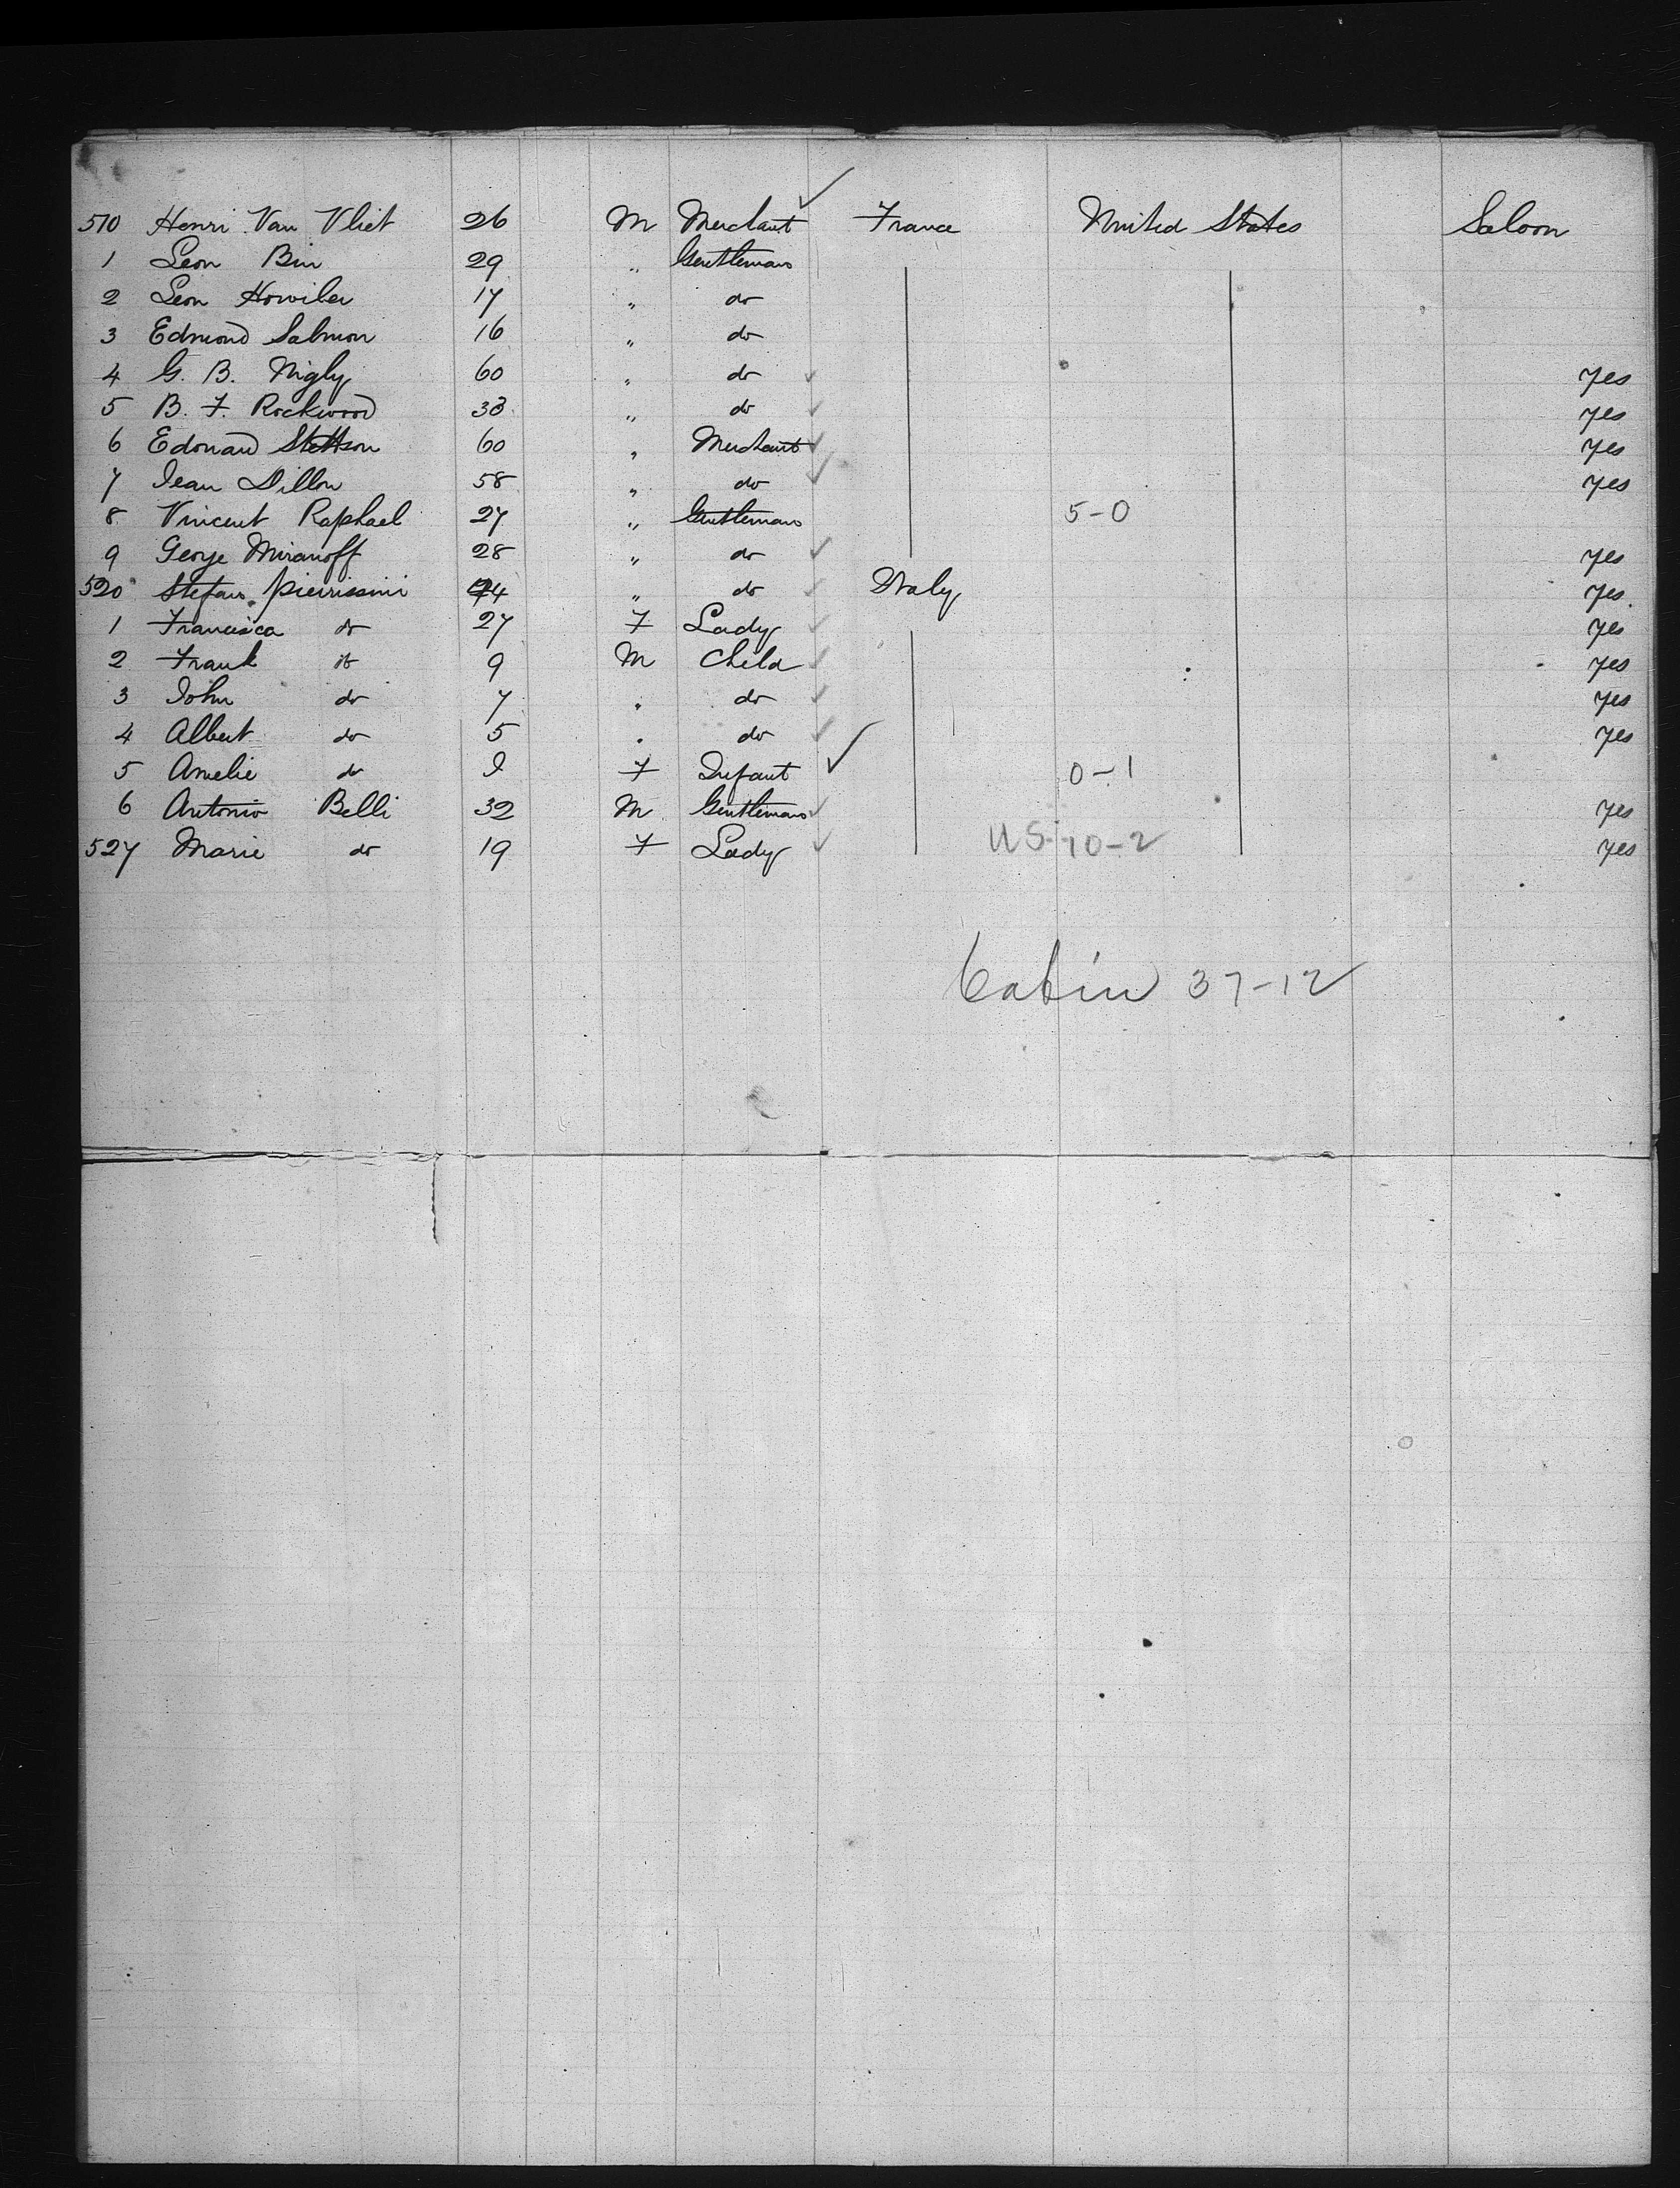 510 Henri Van Vliet 26 M Merchant France United States Saloon
1 Leon Bin 29 " Gentleman
2 Leon Howiler 17 " do
3 Edmond Salmon 16 " do
4 G. B. Nigly 60 " do yes
5 B. F. Rockwood 33 " do yes
6 Edouard Stettson 60 " Merchant yes
7 Jean Dillon 58 " do yes
8 Vincent Raphael 27 " Gentleman 5-0
9 George Miranoff 28 " do yes
520 Stefano Pierrissini 44 " do Italy yes
1 Francisca do 27 F Lady yes
2 Frank do 9 M Child yes
3 John do 7 " do yes
4 Albert do 5 " do yes
5 Amelie do F Infant 0-1
6 Antonio Belli 32 M Gentleman yes
527 Marie do 19 F Lady US-10-2 yes
Cabin 37-12